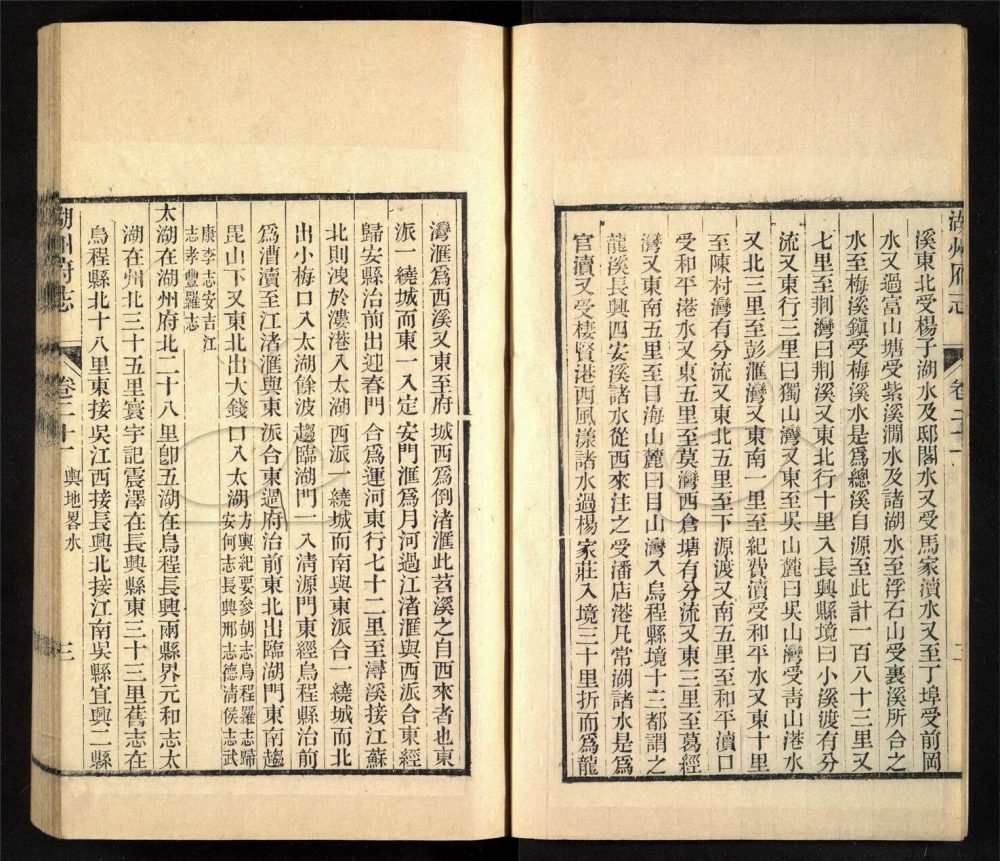 湖州府志
卷二十
二
溪東北受楊子湖水及邸閣水又受馬家瀆水又至丁埠受前岡
水又過富山塘受紫溪澗水及諸湖水至浮石山受裏溪所合之
水至梅溪鎮受梅溪水是爲總溪自源至此計一百八十三里又
七里至荆灣曰荆溪又東北行十里入長興縣境曰小溪渡有分
流又東行三里曰獨山灣又東至吳山麓曰吳山灣受靑山港水
又北三里至彭滙灣又東南一里至紀費瀆受和平水又東十里
至陳村灣有分流又東北五里至下源渡又南五里至和平瀆口
受和平港水又東五里至莫灣西倉塘有分流又東三里至葛經
灣又東南五里至目海山麓曰目山灣入烏程縣境十三都謂之
龍溪長興四安溪諸水從西來注之受潘店港凡常湖諸水是爲
官瀆又受棲賢港西風漾諸水過楊家莊入境三十里折而爲龍
灣滙爲西溪又東至府城西爲倒渚滙此苕溪之自西來者也東
派一繞城而東一入定安門滙爲月河過江渚滙與西派合東經
歸安縣治前出迎春門合爲運河東行七十二里至潯溪接江蘇
北則洩於漊港入太湖西派一繞城而南與東派合一繞城而北
出小梅口入太湖餘波趨臨湖門一入淸源門東經烏程縣治前
爲漕瀆至江渚滙與東派合東過府治前東北出臨湖門東南趨
毘山下又東北出大錢口入太湖方輿紀要參胡志烏程羅志歸
安何志長興邢志德淸侯志武
康李志安吉江
志孝豐羅志
太湖在湖州府北二十八里卽五湖在烏程長興兩縣界元和志太
湖在州北三十五里寰宇記震澤在長興縣東三十三里舊志在
烏程縣北十八里東接吳江西接長興北接江南吳縣宜興二縣
湖州府志
卷二十
輿地畧水
三